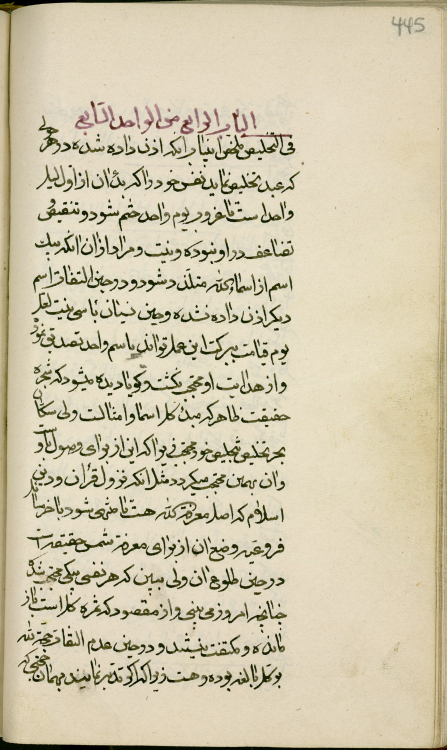 445
الباب الرابع من الواحد التاسع
فی التخلیص ملخص این باب انکه اذن داده شده در هر حالی
که عبد تخلیص نماید نفس خود را که بدء ان از اول لیل
واحد است تا غروب یوم واحد ختم شود و تنقیص و
تضاعف در او نبوده و نیست و مراد از ان انکه بیک
اسم از اسماء الله متلذذ شود و در حین التفات باسم
دیگر اذن داده نشده و حین نسیان باسی نیست لعل
یوم قیامت ببرکت این عمل تواند باسم واحد تصدیق نمود
و از هدایت او محتجب نگشت و گویا دیده میشود که شجره
حقیقت ظاهر که مبدء کل اسما و امثالست ولی سکان
بحر تخلیص بتخلیص خود محتجب زیرا که این از برای وصول باو است
و ان بهمین محتجب میگردد مثل انکه نزول قران و دین
اسلام که اصل معرفة الله هست تا منتهی شود باخر
فروع دین وضع ان از برای معرفة شمس حقیقت است
در حین طلوع ان ولی ببین که هر نفسی بیکی محتجب شده
چنانچه امروز می بینی و از مقصود که ثمره کل است باز
مانده و ملتفت نیستند و در حین عدم التفات حجة الله
بر کل بالغ بوده و هست زیرا که اگر تدبر نمایند بهمان حجتی که